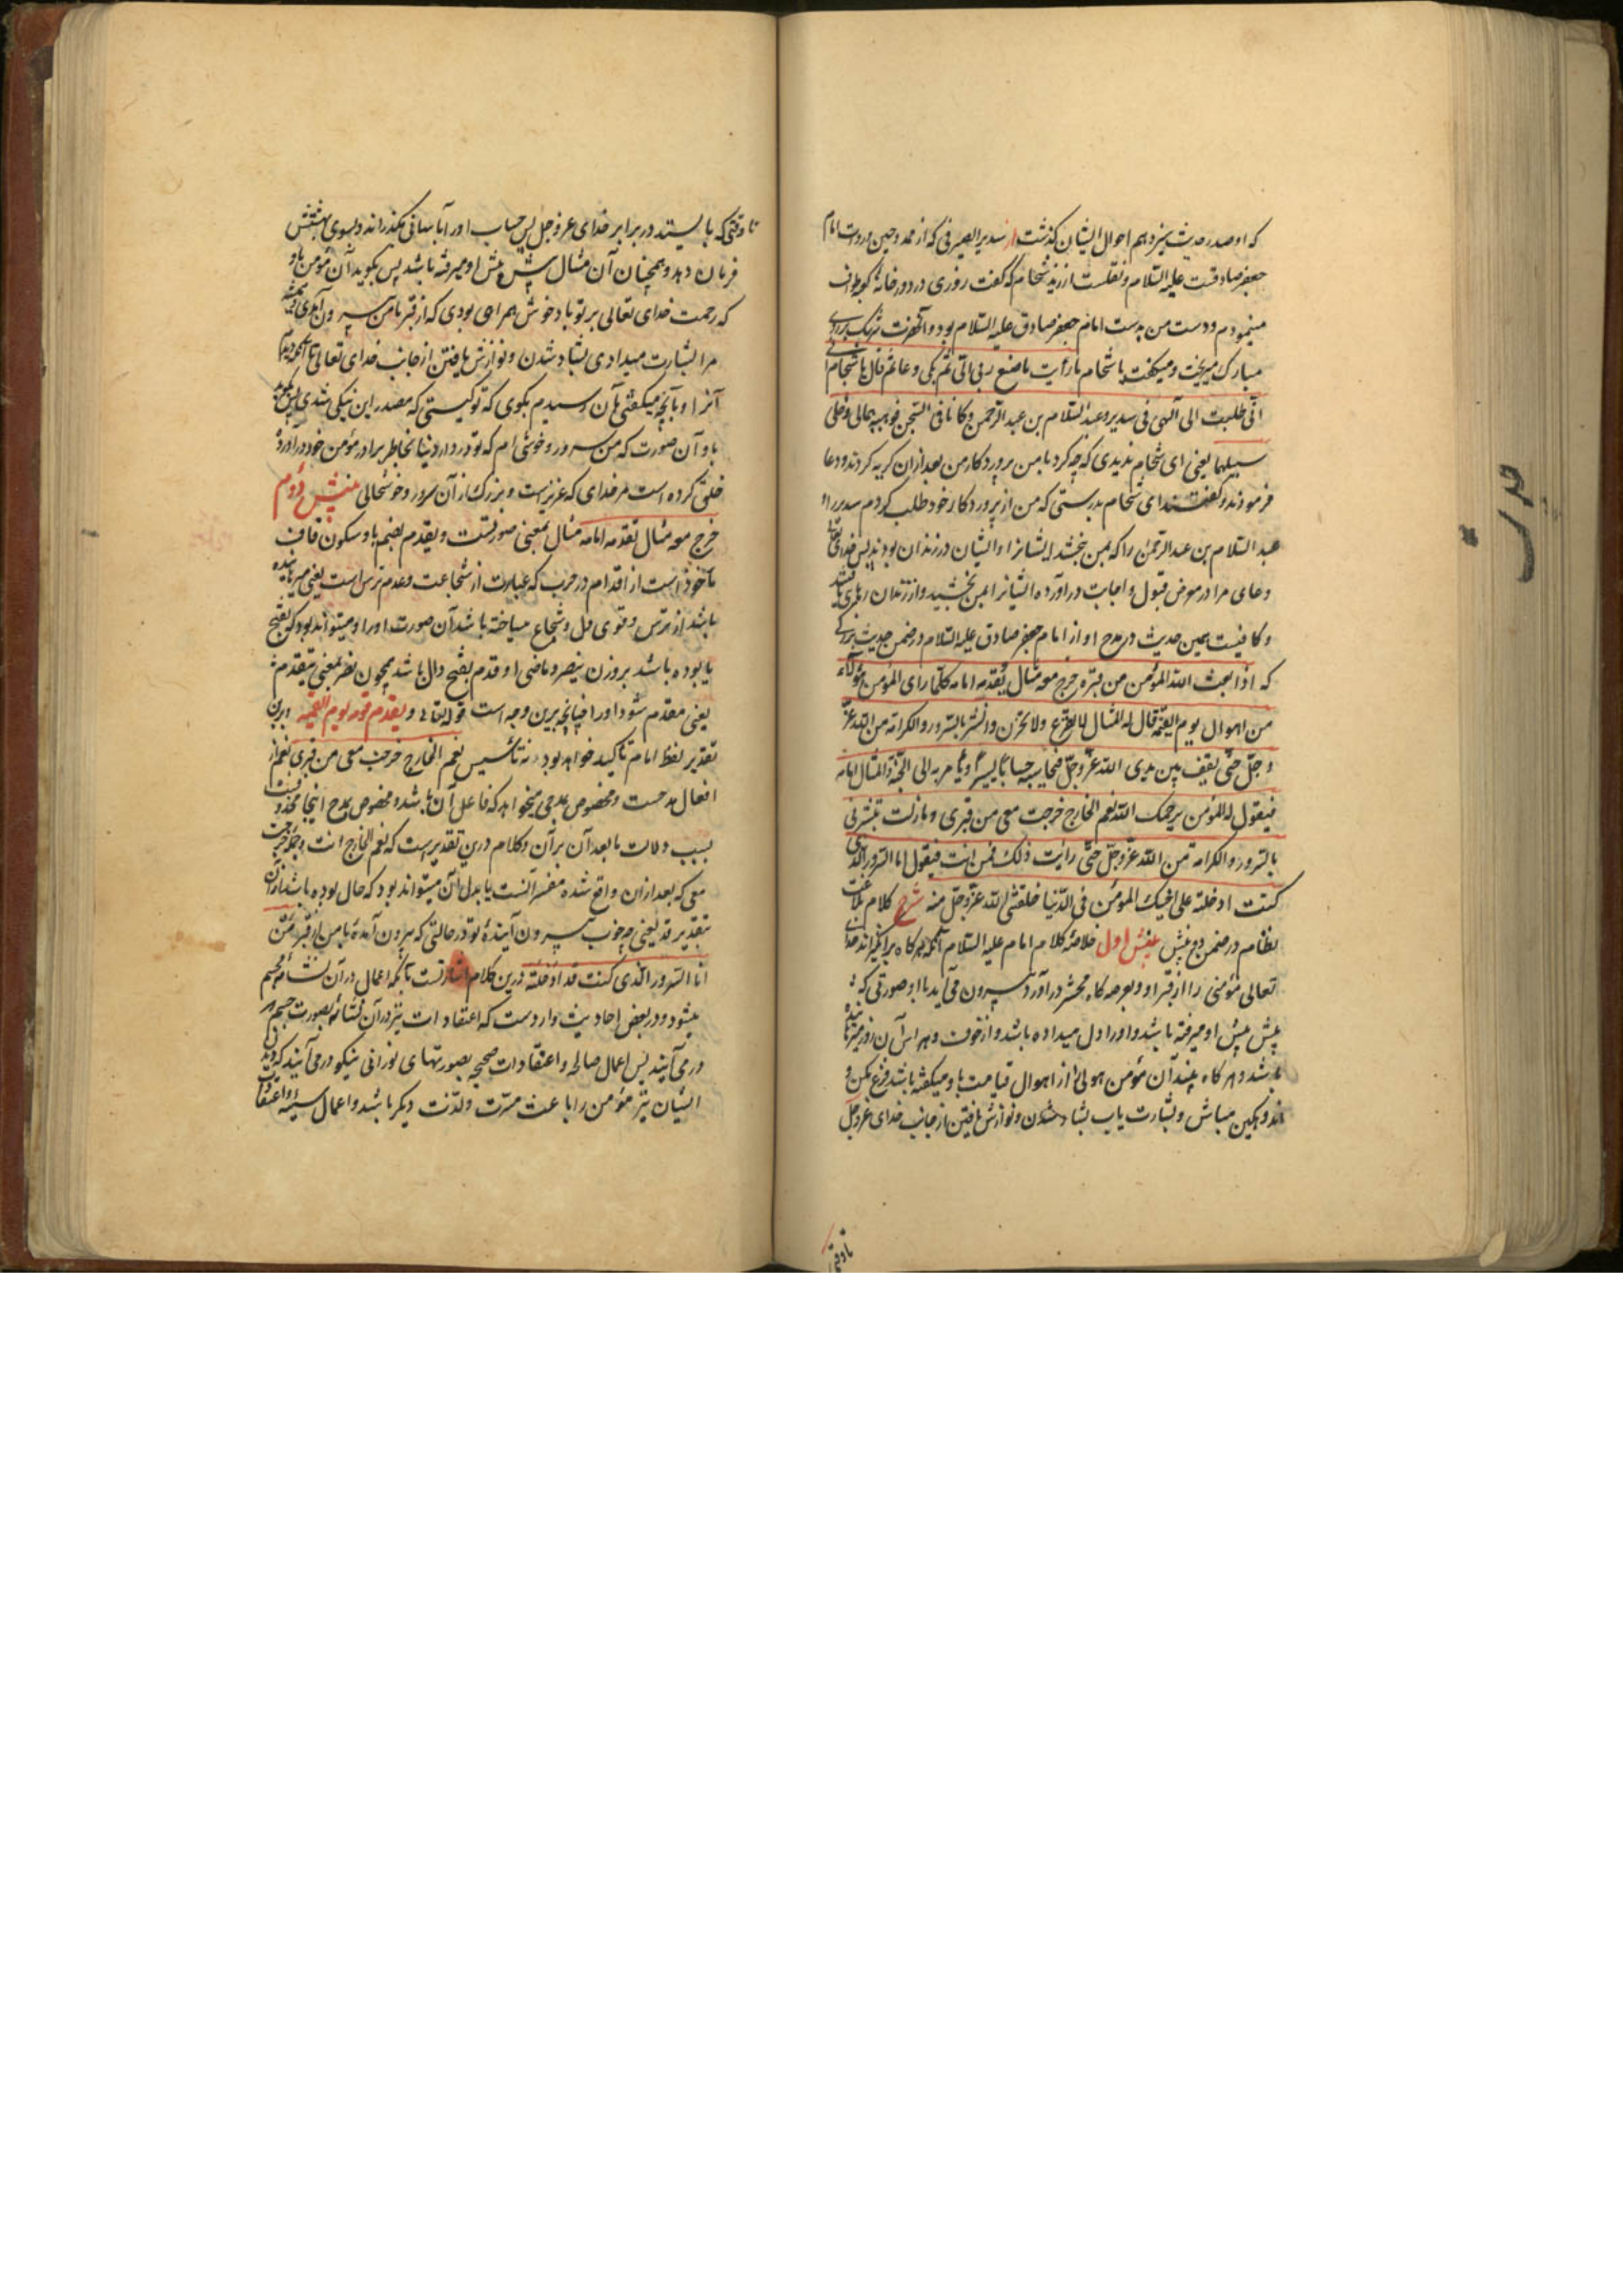 که او صدر حدیث سیزدهم احوال ایشان گذشت از سدیر الصیرفی که از ممدوحین و روات امام
جعفر صادقست علیه السلام و نقلست از زید شحام که گفت روزی در دور خانهٔ کعبه طواف
مینمودم و دست من بدست امام جعفر صادق علیه السلام بود و آنحضرت اشک بر روی
مبارک میریخت و میگفت یا شحام ما رأیت ما صنع ربی الی ثم بکی و دعا ثم قال یا شحام
انی طلبت الی الهی فی سدیر و عبد السلام بن عبد الرحمن و کانا فی السجن فوهبهما لی و خلی
سبیلهما یعنی ای شحام ندیدی که چه کرد با من پروردگار من بعد از آن گریه کردند و دعا
فرمودند و گفتند ای شحام بدرستی که من از پروردگار خود طلب کردم سدیر را و
عبد السلام بن عبد الرحمن را که بمن بخشد ایشانرا و ایشان در زندان بودند پس خدای تعالی
دعای مرا در معرض قبول و اجابت درآورده ایشانرا بمن بخشید و از زندان رهائی یافتند
و کافیست همین حدیث در مدح او از امام جعفر صادق علیه السلام در ضمن حدیث بزرگی
که اذا بعث الله المؤمن من قبره خرج معه مثال یقدمه امامه کلما رأی المؤمن هولاً
من اهوال یوم القیمة قال له المثال لا تفزع و لا تحزن و ابشر بالسرور و الکرامة من الله عز
و جل حتی یقف بین یدی الله عز و جل فیحاسبه حسابا یسیرا و یأمر به الی الجنة و المثال امامه
فیقول له المؤمن یرحمک الله نعم الخارج خرجت معی من قبری و ما زلت تبشرنی
بالسرور و الکرامة من الله عز و جل حتی رأیت ذلک فمن انت فیقول انا السرور الذی
کنت ادخلته علی اخیک المؤمن فی الدنیا خلقنی الله عز و جل منه شرح کلام بلاغت
نظام در ضمن دو بینش بینش اول خلاصهٔ کلام امام علیه السلام آنکه هرگاه برانگیزاند خدای
تعالی مؤمنی را از قبر او و بعرصه گاه محشر درآورد بیرون می آید با او صورتی که
پیش پیش او میرفته باشد و او را دل میداده باشد و از خوف و هراس آن روز
باشد و هرگاه بیند آن مؤمن هولی را از اهوال قیامت باو میگفته باشد فزع مکن و
اندوهگین مباش و بشارت یاب بشاد شدن و نوازش یافتن از جانب خدای عز و جل
تا وقتی
تا وقتی که بایستد در برابر خدای عز و جل پس حساب او را بآسانی بگذراند و بسوی بهشتش
فرمان دهد و همچنان آن مثال پیش پیش او میرفته باشد پس بگوید آن مؤمن باو
که رحمت خدای تعالی بر تو باد خوش همراهی بودی که از قبر با من بیرون آمدی و همیشه
مرا بشارت میدادی بشاد شدن و نوازش یافتن از جانب خدای تعالی تا آنکه دیدم
آنرا و بآنچه میگفتی بآن رسیدم بگوی که تو کیستی که مصدر این نیکی شدی پس بگوید
باو آن صورت که من سرور و خوشی ام که تو در دار دنیا بخاطر برادر مؤمن خود درآوردهٔ
خلق کرده است مر خدای که عزیزست و بزرگ از آن سرور و خوشحالی بینش دوم
خرج معه مثال تقدمه امامه مثال بمعنی صورتست و یقدم بضم یا و سکون قاف
مأخوذ است از اقدام در حرب که عبارت از شجاعت و عدم ترس است یعنی
باشد از ترس و قوی دل و شجاع میساخته باشد آن صورت او را و میتواند بود که بفتح
یا بوده باشد بر وزن ینصر و ماضی او قدم بفتح دال باشد همچون نصر بمعنی یتقدمه
یعنی مقدم شود او را چنانچه برین وجه است قوله تعالی و یقدم قومه یوم القیمه و برین
تقدیر لفظ امام تأکید خواهد بود نه تأسیس نعم الخارج خرجت معی من قبری نعم از
افعال مدحست و مخصوص بمدحی میخواهد که فاعل آن باشد و مخصوص بمدح اینجا محذوفست
بسبب دلالت ما بعد آن بر آن و کلام درین تقدیرست که نعم الخارج انت و جمله خرجت
معی که بعد از آن واقع شده مفسر آنست یا بدل آن میتواند بود که حال بوده باشد از آن
بتقدیر قد یعنی چه خوب بیرون آیندهٔ تو در حالتی که بیرون آمدهٔ با من از قبر من
انا السرور الذی کنت قد ادخلته درین کلام اشارتست بآنکه اعمال در آن نشأه مجسم
میشود و در بعض احادیث واردست که اعتقادات نیز در آن نشأه بصورت جسم
در می آیند پس اعمال صالحه و اعتقادات صحیحه بصورتهای نورانی نیکو در می آیند که دیدن
ایشان نیز مؤمن را باعث مسرت و لذت دیگر باشد و اعمال سیئه و اعتقادات